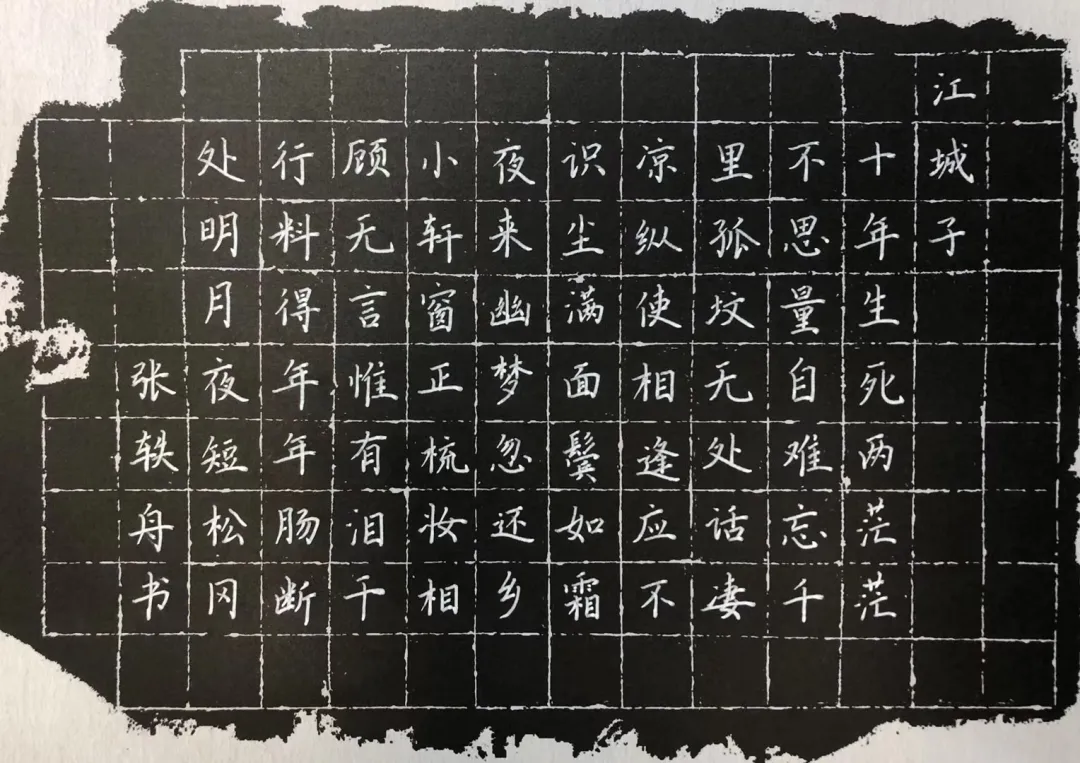 江城子
十年生死两茫茫
不思量自难忘千
里孤坟无处话凄
凉纵使相逢应不
识尘满面鬓如霜
夜来幽梦忽还乡
小轩窗正梳妆相
顾无言惟有泪千
行料得年年肠断
处明月夜短松冈
张轶舟书